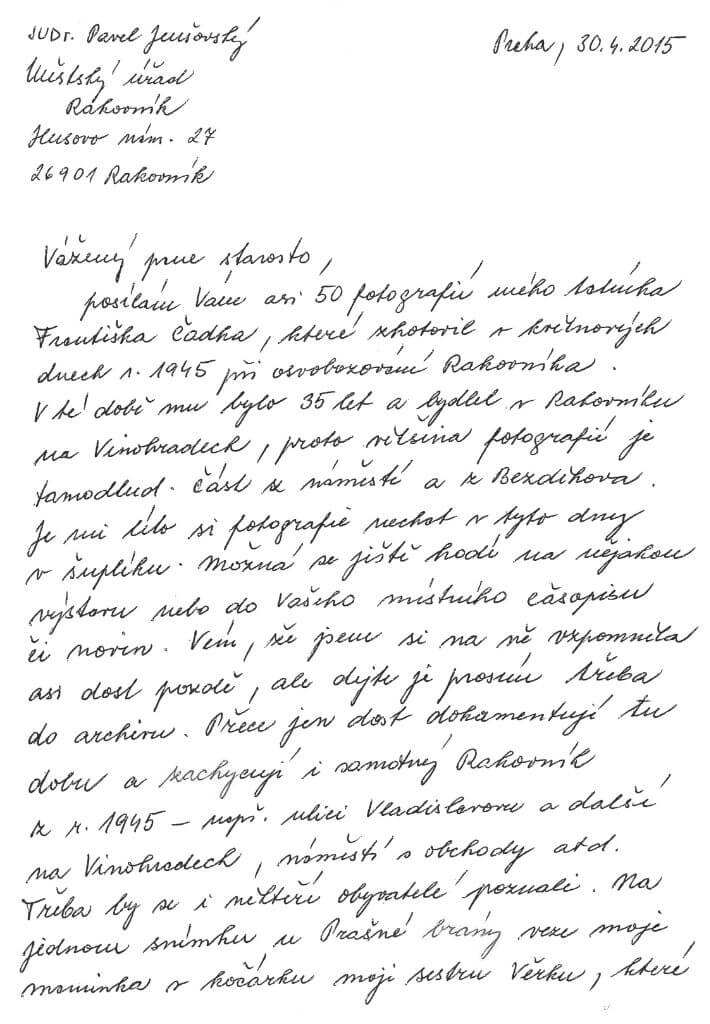 JUDr. Pavel Jenšovský
Praha, 30.4.2015
Městský úřad
Rakovník
Husovo nám. 27
26901 Rakovník
Vážený pane starosto,
posílám Vám asi 50 fotografií mého tatínka
Františka Čadka, které zhotovil v květnových
dnech r. 1945 při osvobozování Rakovníka.
V té době mu bylo 35 let a bydlel v Rakovníku
na Vinohradech, proto většina fotografií je
tamodtud. Část z náměstí a z Bezděkova.
Je mi líto si fotografie nechat v tyto dny
v šuplíku. Možná se ještě hodí na nějakou
výstavu nebo do Vašeho místního časopisu
či novin. Vím, že jsem si na ně vzpomněla
asi dost pozdě, ale dejte je prosím třeba
do archivu. Přece jen dost dokumentují tu
dobu a zachycují i samotný Rakovník
z r. 1945 – např. ulici Vladislavovu a další
na Vinohradech, náměstí s obchody atd.
Třeba by se i někteří obyvatelé poznali. Na
jednom snímku u Prašné brány veze moje
maminka v kočárku moji sestru Věrku, které